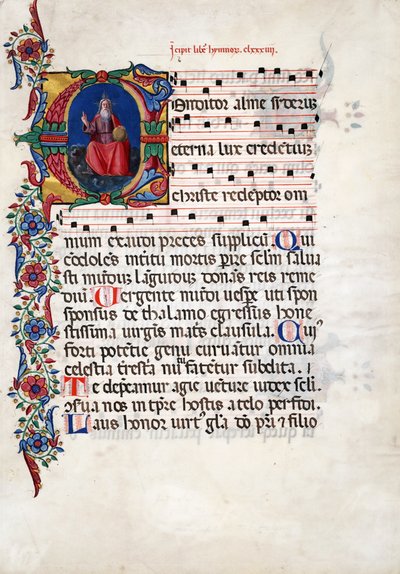 Jncipit lib' hymnoꝝ. clxxxiiij.
Conditor alme siderum
eterna lux credentium
christe redeptor om
nium exaudi preces supplicū Qui
cōdolēs intitū mortis p̄ire seclm salua
sti mūduȝ lāguiduȝ donās reis reme
diū Uergente mūdi uesp̄e uti spon
sponsus de thalamo egressus hone
stissima uirgīs matīs clausula. Cuiꝰ
forti potētie genu curuātur omnia
celestia trestia nutu fatētur subdita. I
Te depcamur agie uēture iudex scl'i
ɔserua nos in tp̄re hostis a telo perfidi.
Laus honor uirtꝰ glīa dō p̄ri ⁊ filio